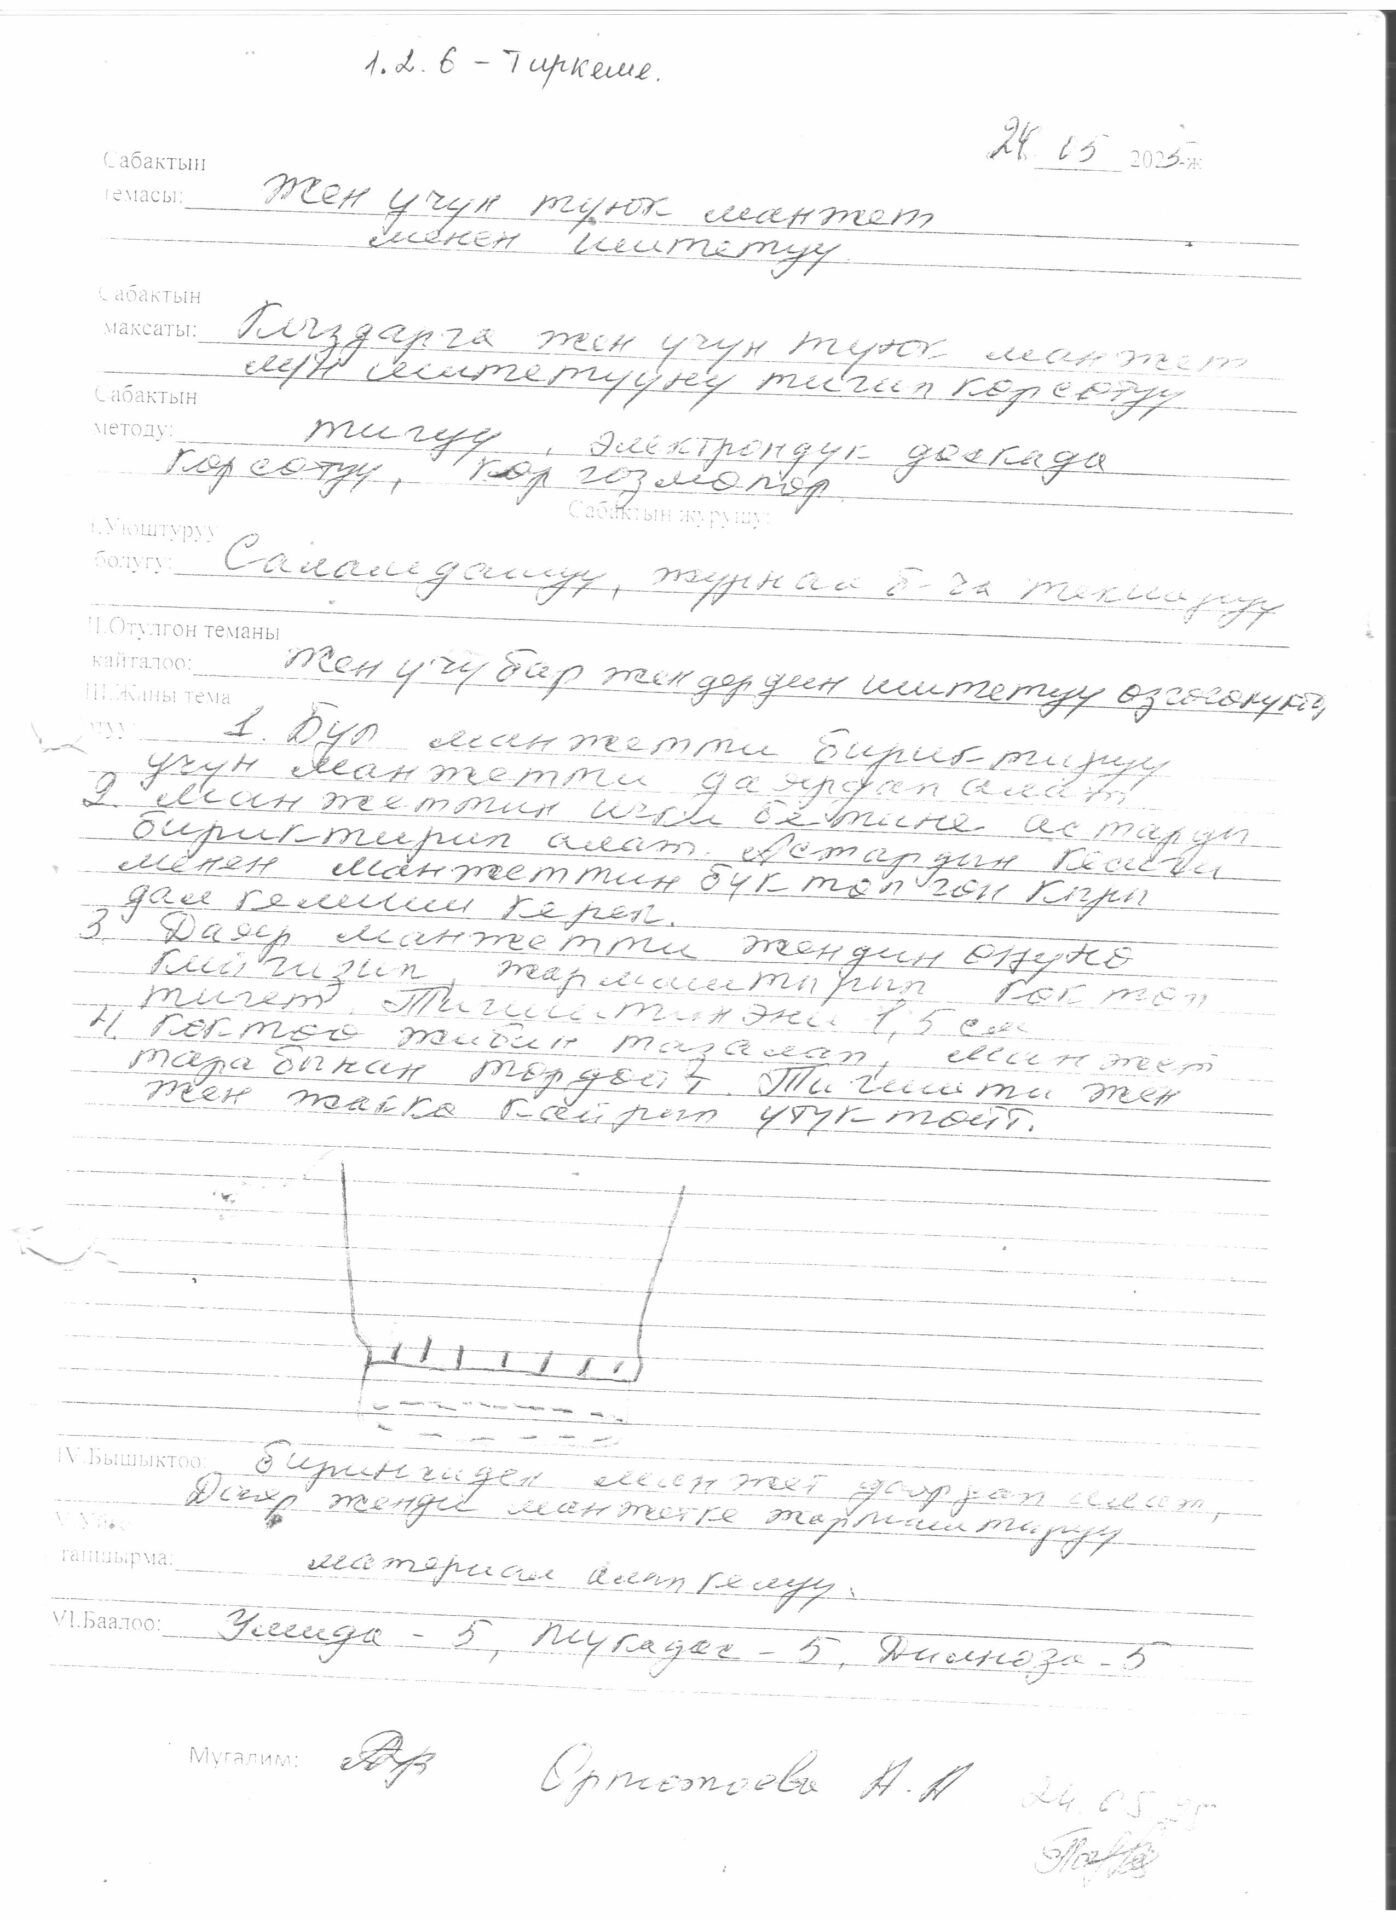 1.2.6 - Тиркеме.
24 05 2025-ж
Сабактын
темасы: Жен учун туюк манжет
менен иштетуу.
Сабактын
максаты: Кыздарга жен учун туюк манжет
мн иштетууну тигип корсотуу
Сабактын
методу: тигуу, электрондук доскада
корсотуу, коргозмолор.
Сабактын журушу:
I.Уюштуруу
болугу: Саламдашуу, журнал б-ча текшеруу
II.Отулгон теманы
кайталоо: Жен учу бар жендердин иштетуу озгочолугу
III.Жаны тема
1. Бул манжетти бириктируу
учун манжетти даярдап алат.
2. Манжеттин ички бетине астарды
бириктирип алат. Астардын кесиги
менен манжеттин буктолгон кыры
дал келиши керек.
3. Даяр манжетти жендин онуно
кийгизип, жармаштырып коктоп
тигет. Тигиштин эни 1,5 см
4. Коктоо жибин тазалап, манжет
тарабынан тордойт. Тигишти жен
жен жакка кайрып утуктойт.
IV.Бышыктоо: Биринчиден манжет даярдап алат,
Даяр женди манжетке жармаштыруу
V.Уйго
тапшырма: материал алып келуу.
VI.Баалоо: Умида - 5, Мукадас - 5, Дилноза - 5
Мугалим: А.А
24.05.25